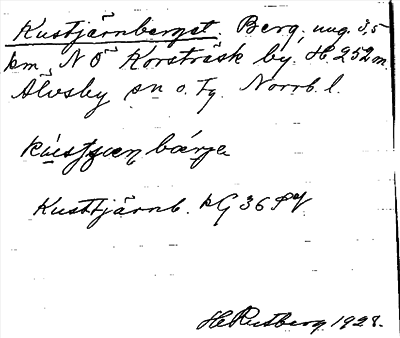 Kustjärnberget. Berg, ung. 3,5
km NÖ Korsträsk by, H. 252 m.
Älvsby sn o. Tg. Norrb. l.
Kusttjärnb. kG 36
H. Rutberg 1928.